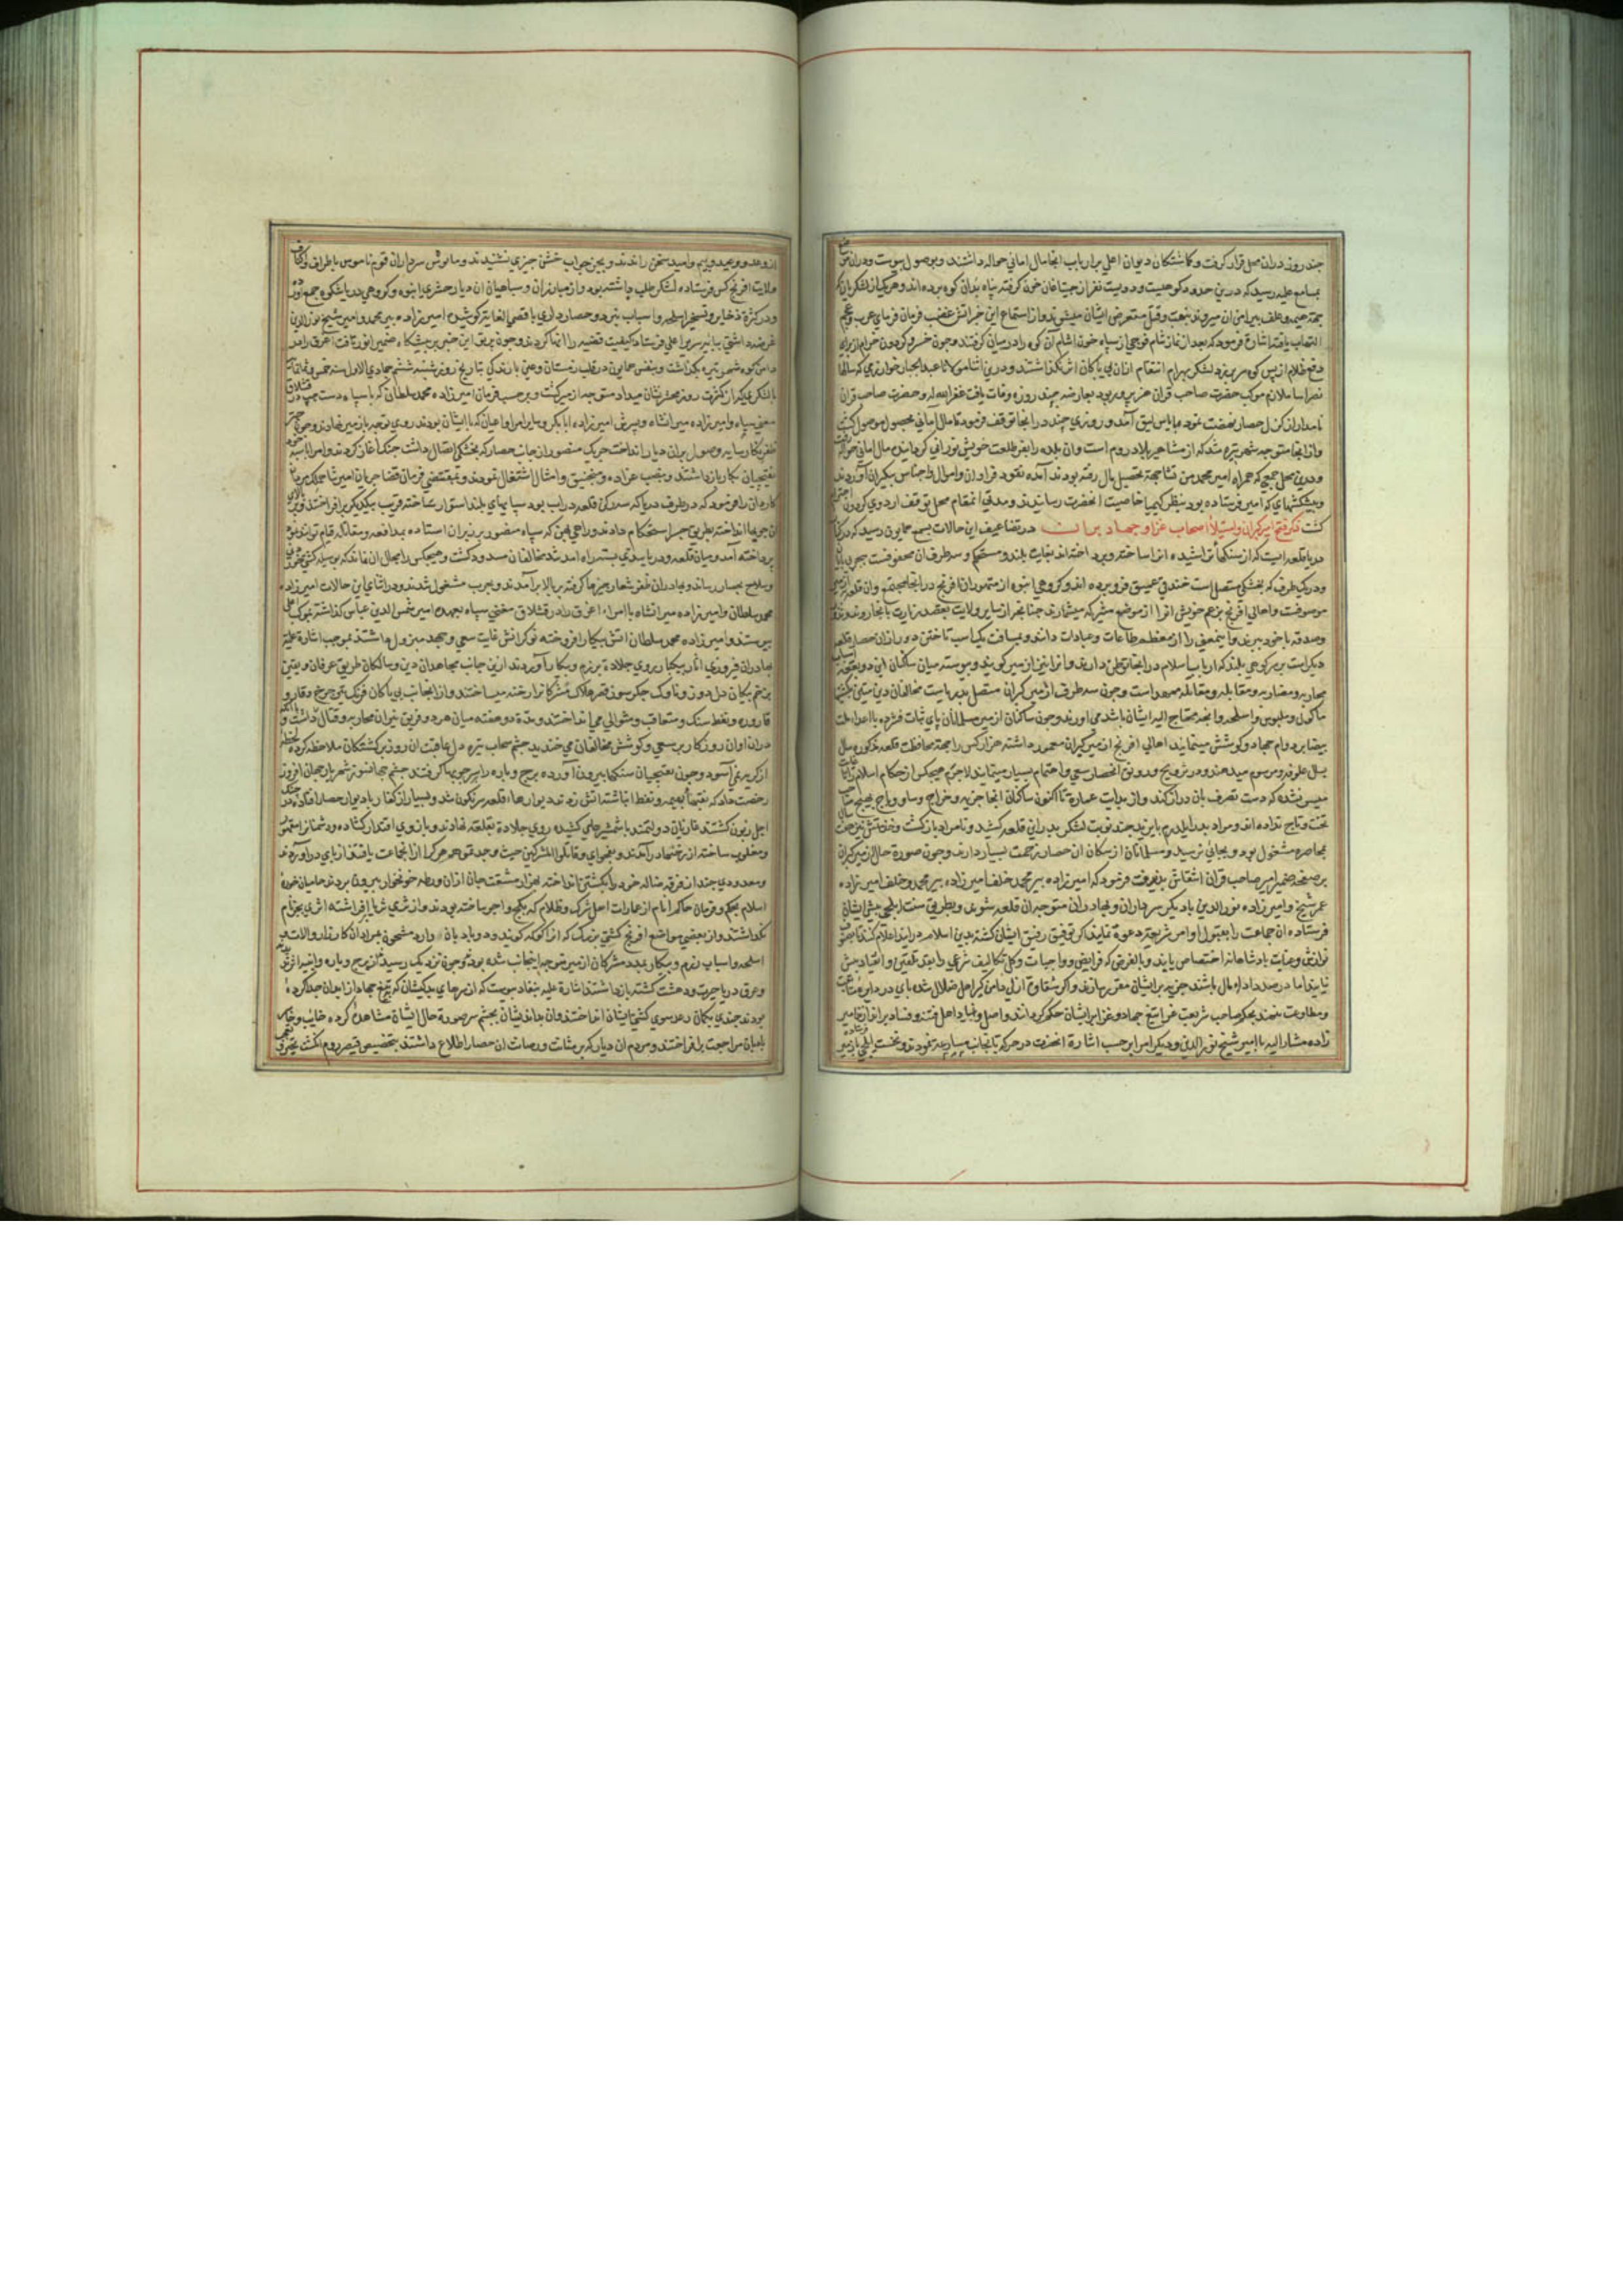 چند روز دران محل قرار گرفت و گماشتگان دیوان اعلی برارباب انجا مال امانی حواله داشتند و بوصول پیوست ودران
بمسامع علیه رسید که درین حدود نفر از جیتاغان خون گرفته پناه بدان کوه برده اند و هر یک از لشکریان
بجهة هیمه وعلف پیرامن ان میروند بنهب وقتل متعرض ایشان میشوند واز استماع این خبر اتش غضب فرمان فرمای عرب وعجم
التهاب یافته اشارة فرمود که بعد از نماز شام فوجی از سپاه خون اشام آن کوه را درمیان گرفتند وچون خسرو گردون خرام از برای
دفع ظلام از پس کوه سر بر زد لشکر بهرام انتقام ازان بی باکان اثر نگذاشتند ودرین اثنا مولانا عبد الجبار خوارزمی که سالها
ملازم موکب حضرت صاحب قران بعارضه چند روزه وفات یافت غفر الله له و حضرت صاحب قران
نامدار از نهضت نموده آمد و روزی چند در انجا توقف فرموده تا مال امانی بحصول موصول گشت
واز انجا متوجه شهر تیره شد که از مشاهیر بلاد روم است وان بلده را بفر طلعت خویش نورانی گردانیده مال امانی حواله رفت
ودرین محل جمعی که همراه امیر محمد بجهة تحصیل مال رفته بودند آمده نقود فراوان واموال واجناس بیکران آوردند
وپیشکشهای که امیر فرستاده بود بنظر کیمیا خاصیت انحضرت رسانیدند ومدتی انمقام محل توقف اردوی گردون احترام
گشت ذکر فتح ازمیر گبران واستیلاء اصحاب غزا وجهاد بران درتضاعیف این حالات بسمع همایون رسید که در کنار
دریا قلعه ایست که از سنگهاء تراشیده انرا ساخته وپرداخته اند بغایت بلند ومستحکم وسه طرف ان محفوفست ببحر بی پایان
ودر یک طرف که بخشکی متصل است خندقی عمیق فرو برده اند وگروهی انبوه از متمردان افرنج در انجا مجتمع وان قلعه بازمیر
موسومست واهالی افرنج بزعم خویش انرا از موضع متبرکه میشمارند چنانچه از سایر ولایت بقصد زیارت بانجا روند ونذر
وصدقه با خود ببرند واینمعنی را از معظم طاعات وعبادات دانند وبمسافت یک اسب تاختن دور ازان حصار قلعه
دیگر است بر سر کوهی بلند که ارباب اسلام در انجا توطن دارند وانرا نیز ازمیر گویند وپیوسته میان ساکنان این دو بقعه
محاربه ومضاربه ومقابله ومقاتله ممهد است وچون سه طرف ازمیر گبران متصل بدریاست مخالفان دین بکشتیها
ماکول وملبوس واسلحه وانچه محتاج الیه ایشان باشد می اورند وچون ساکنان ازمیر مسلمانان پای ثبات فشرده با اعداء ملت
بیضا بر دوام جهاد وکوشش مینمایند اهالی افرنج ازمیر گبران معمور داشته هزار کس را بجهة محافظت قلعه مذکوره سال
بسال علوفه ومرسوم میدهند ودر ترویج ورونق انحصار سعی واهتمام بسیار مینمایند لاجرم هیچکس از حکام اسلام
میسر نشده که دست تصرف بان دراز کند واز بدایت عماره تا اکنون ساکنان انجا جزیه وخراج وساو وباج بهیچ صاحب
تخت وتاج نداده اند ومراد پدر ایلدرم بایزید چند نوبت لشکر بدر این قلعه کشید ونامراد باز گشت
بمحاصره مشغول بود وبجائی نرسید ومسلمانان از سکان ان حصار زحمت بسیار دارند وچون صورة حال ازمیر گبران
بر صفحه ضمیر امیر صاحب قران انتقاش پذیرفت فرمود که امیرزاده پیر محمد خلف امیرزاده
عمر شیخ وامیرزاده نور الدین با دیگر سرداران وبهادران متوجه ان قلعه شوند وبطریق سنت ایلچی پیش ایشان
فرستاده ان جماعت را بقبول اوامر شریعة دعوة نمایند اگر توفیق رفیق ایشان گشته بدین اسلام در ایند اعلام کنند
نوازش وعنایت پادشاهانه اختصاص یابند وبالفرض که فرایض وواجبات وکل تکالیف شرعی را بقدم تلقی وانقیاد پیش
نیایند اما درصدد اداء مال باشند جزیه بر ایشان مقرر سازند واگر شقاوة ازلی دامن گیر اهل ضلال شده پای در دایره
ومطاوعت ننهند بحکم صاحب شریعت غرا بتیغ جهاد وغزا بر ایشان حکم گردانند واصل وبنیاد اهل فتنه وفساد براندازند امیر
زاده مشار الیه با امیر شیخ نور الدین ودیگر امرا برحسب اشارة انحضرت در حرکة بانجانب مسارعه نمودند ونخست ایلچی بازمیر
از وعد ووعید وبیم وامید سخن راندند وبجز جواب خشن چیزی نشنیدند سرداران قوم ناموس باطراف واکناف
ولایت افرنج کس فرستاده لشکر طلب داشته بود واز مبارزان وسپاهیان ان دیار حشری انبوه وگروهی دریا شکوه جمع آورده
ودر کثرة ذخایر وتسخیر اسلحه واسباب نبرد وحصار داری باقصی الغایة کوشیده امیرزاده پیر محمد وامیر شیخ نور الدین
عرضه داشتی بپایه سریر اعلی فرستاد کیفیت قضیه را انها کردند وچون پرتو این خبر بر پیشگاه ضمیر انور تافت اغرق را در
دامن کوه شهر تیره بگذاشت وبنفس همایون در قلب زمستان وعین بارندگی بتاریخ روز شنبه ششم جمادی الاول سنه خمس وثمانمایة
بالشکری که از کثرت روز محشر نشان میداد متوجه ازمیر گشت وبرحسب فرمان امیرزاده محمد سلطان که با سپاه دست چپ در قشلاق
مغنی سیاه وامیرزاده میرانشاه وپسرش امیرزاده ابا بکر وسایر امرا واعیان که با ایشان بودند روی توجه بازمیر نهادند وچون چتر
ظفر نگار سایه وصول بران دیار انداخت حریک منصور از جانب حصار که بخشکی اتصال داشت جنگ آغاز کردند
نقبچیان بکار باز داشتند وبنصب عراده ومنجنیق وامثال اشتغال نمودند وبمقتضی فرمان قضا جریان امیر شاهملک
کاردان را فرمود که در طرف دریا که سه رکن قلعه دراب بود سپایهای بلند استوار ساخته قریب بیکدیگر برافراختند وبر بالای
ان چوبها انداخته بطریق جسر استحکام دادند وراهی پهن که سپاه منصور بر زبر ان استاده بمدافعه ومقاتله قیام توانند نمود
پرداخته آمد ومیان قلعه ودریا سدی بسته راه امد شد مخالفان مسدود گشت وهیچکس را مجال ان نماند که بوسیله کشتی
وسلاح بحصار رساند وبهادران ظفر شعار چپرها گرفته بر بالا بر آمدند وبحرب مشغول شدند ودر اثنای این حالات امیرزاده
محمد سلطان وامیرزاده میرانشاه با امراء اغرق را در قشلاق مغنی سیاه بعهده امیر شمس الدین عباس گذاشته بموکب اعلی
پیوستند وامیرزاده محمد سلطان اتش پیکار افروخته نوکرانش غایت سعی وجهد مبذول داشتند بموجب اشارة علیه
بهادران فیروزی اثار بیکبار روی جلادة برزم وپیکار آوردند ازین جانب مجاهدان دین وسالکان طریق عرفان ویقین
بزخم پیکان دل دوز وناوک جگر سوز قصر هلاک مشرکانرا رخنه میساختند واز انجانب بی باکان فرنگ بتیر چرخ
قاروره ونفط وسنگ متعاقب ومتوالی می انداختند ومدة دو هفته میان هر دو فریق نیران محاربه وقتال
دران اوان روزگار بر سعی وکوشش مخالفان می خندید چشم سحاب تیره دل عاقبت ان روز برگشتگان ملاحظه کرده
از گریه نمی آسود وچون نقبچیان سنگها بیرون آورده برج وباره را بر سر چوبها گرفتند چشم جهانسوز شهریار جهان افروز
رخصت داد که نقبها بهیمه ونفط انباشته اتش زدند دیوارهاء قلعه سرنگون شد وبسیار از کفار با دیوار حصار افتاده در چنگ
اجل زبون گشتند غازیان دولتمند با شمشیرهای کشیده روی جلادة بقلعه نهادند وبازوی اقتدار گشاده ودشمنانرا
ومغلوب ساخته از رخنها درآمدند وبفحوای وقاتلوا المشرکین حیث وجدتموهم هر کرا از انجماعت یافتند از پای درآوردند
ومعدودی چند از فرقه ضاله خود را بکشتی انداخته بهزار مشقت جان ازان ورطه خونخوار بیرون بردند حامیان حوزه
اسلام بحکم وفرمان حاکم انام از عمارات اهل شرک وظلام که بگچ واجر ساخته بودند واز ثری ثریا افراشته اثری بجز نام
نگذاشتند واز بعضی مواضع افرنج کشتی بزرگ که ازا کوکه گویند ودو بادبان دارد مشحون بمردان کارزار والات
اسلحه واسباب رزم وپیکار بمدد مشرکان ازمیر متوجه اینجانب شده بود وچون نزدیک رسیدند از برج وباره وابنیه اثر ندیدند
وغرق دریا حیرت ودهشت گشته باز داشتند اشارة علیه بنفاذ پیوست که از سرهای بدکیشان که بتیغ جهاد از ابدان جدا کرده
بودند چندی بکمان رعد سوی کشتی ایشان انداختند وان بداندیشان بچشم سر صورة حال ایشان مشاهده کرده خایب وخاسر
بادبان مراجعت برافراختند ومردم ان دیار که بر متانت ورصانت ان حصار اطلاع داشتند بتخصیص قیصر روم انگشت تعجب